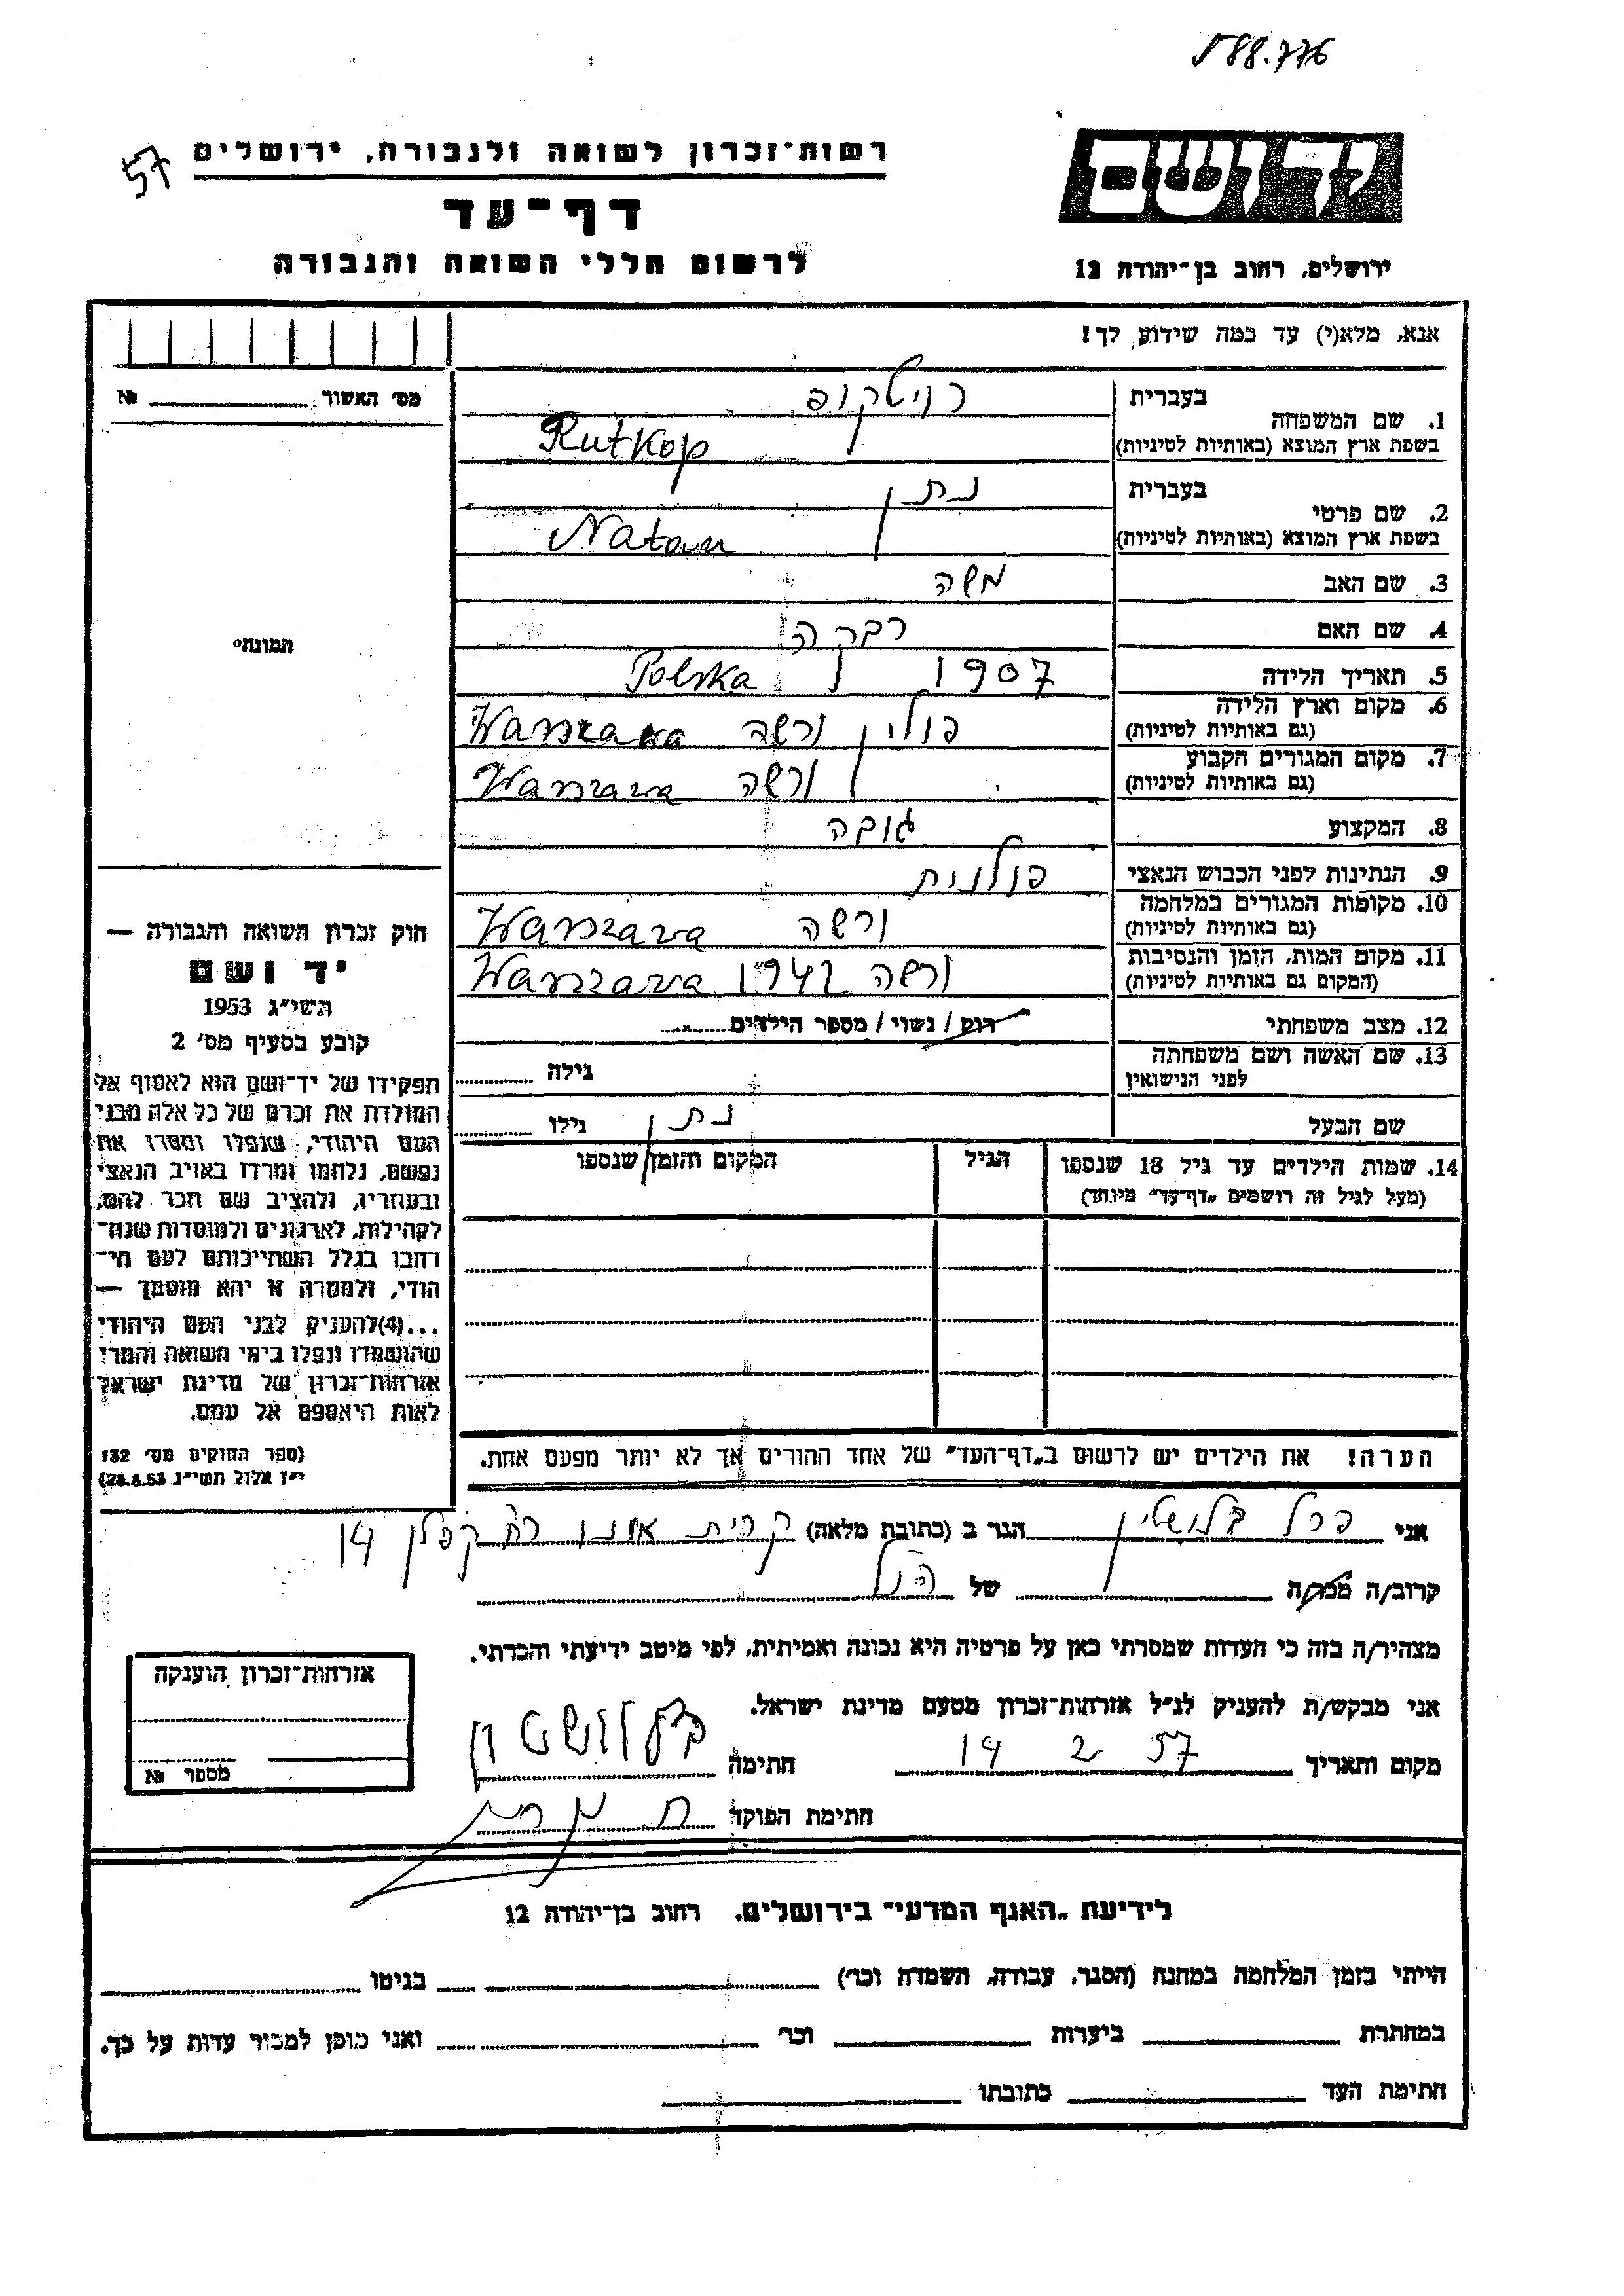 588.776
57
יד ושם
ירושלים, רחוב בן־יהודה 12
רשות־זכרון לשואה ולגבורה, ירושלים
דף־עד
לרשום חללי השואה והגבורה
אנא, מלא(י) עד כמה שידוע לך!
מס' האשור №
תמונה
1. שם המשפחה
בעברית רויטקופ
בשפת ארץ המוצא (באותיות לטיניות) Rutkop
2. שם פרטי
בעברית נתן
בשפת ארץ המוצא (באותיות לטיניות) Natan
3. שם האב משה
4. שם האם רבקה
5. תאריך הלידה 1907 Polska
6. מקום וארץ הלידה (גם באותיות לטיניות) פולין ורשה Warszawa
7. מקום המגורים הקבוע (גם באותיות לטיניות) ורשה Warszawa
8. המקצוע גובה
9. הנתינות לפני הכבוש הנאצי פולנית
10. מקומות המגורים במלחמה (גם באותיות לטיניות) ורשה Warszawa
11. מקום המות, הזמן והנסיבות (המקום גם באותיות לטיניות) ורשה 1942 Warszawa
12. מצב משפחתי רוק / נשוי / מספר הילדים
13. שם האשה ושם משפחתה לפני הנישואין גילה
שם הבעל נתן גילו
14. שמות הילדים עד גיל 18 שנספו
(מעל לגיל זה רושמים „דף־עד" מיוחד)
הגיל
המקום והזמן שנספו
הערה! את הילדים יש לרשום ב„דף־העד" של אחד ההורים אך לא יותר מפעם אחת.
חוק זכרון השואה והגבורה —
יד ושם
תשי"ג 1953
קובע בסעיף מס' 2
תפקידו של יד־ושם הוא לאסוף אל
המולדת את זכרם של כל אלה מבני
העם היהודי, שנפלו ומסרו את
נפשם, נלחמו ומרדו באויב הנאצי
ובעוזריו, ולהציב שם וזכר להם,
לקהילות, לארגונים ולמוסדות שנח־
רבו בגלל השתייכותם לעם הי־
הודי, ולמטרה זו יהא מוסמך —
...(4)להעניק לבני העם היהודי
שהושמדו ונפלו בימי השואה והמרי
אזרחות־זכרון של מדינת ישראל
לאות היאספם אל עמם.
(ספר החוקים מס' 132
י"ז אלול תשי"ג 28.8.53)
אני פרל בלושטין הגר ב (כתובת מלאה) קרית אונו רח קפלן 14
קרוב/ה מכר/ה של הנ"ל
מצהיר/ה בזה כי העדות שמסרתי כאן על פרטיה היא נכונה ואמיתית, לפי מיטב ידיעתי והכרתי.
אני מבקש/ת להעניק לנ"ל אזרחות־זכרון מטעם מדינת ישראל.
מקום ותאריך 14 2 57 חתימה
חתימת הפוקד
אזרחות־זכרון הוענקה
מספר №
לידיעת „האגף המדעי" בירושלים. רחוב בן־יהודה 12
הייתי בזמן המלחמה במחנה (הסגר, עבודה, השמדה וכו') בגיטו
במחתרת ביערות וכו' ואני מוכן למסור עדות על כך.
חתימת העד כתובתו